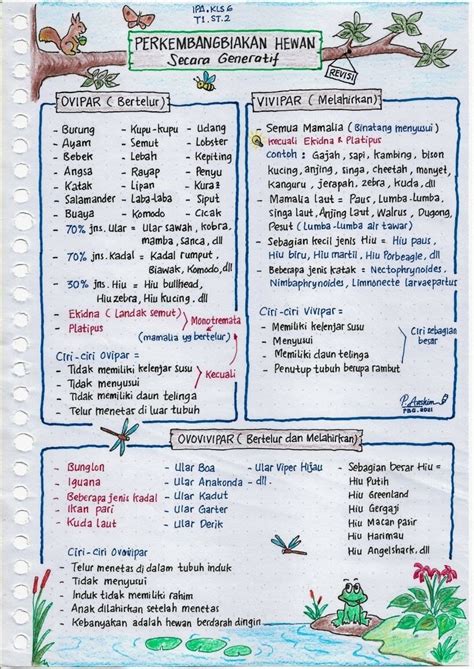 IPA.KLS 6
T1.ST.2
PERKEMBANGBIAKAN HEWAN
Secara Generatif
REVISI
OVIPAR (Bertelur)
- Burung - Kupu-kupu - Udang
- Ayam - Semut - Lobster
- Bebek - Lebah - Kepiting
- Angsa - Rayap - Penyu
- Katak - Lipan - Kura²
- Salamander - Laba-laba - Siput
- Buaya - Komodo - Cicak
- 70% jns. Ular = Ular sawah, kobra,
mamba, sanca, dll
- 70% jns. Kadal = Kadal rumput,
Biawak, Komodo, dll
- 30% jns. Hiu = Hiu bullhead,
Hiu zebra, Hiu kucing, dll
- Ekidna (Landak semut)
- Platipus
Monotremata
(mamalia yg bertelur)
Ciri-ciri Ovipar =
- Tidak memiliki kelenjar susu
- Tidak menyusui
- Tidak memiliki daun telinga
- Telur menetas di luar tubuh
Kecuali
VIVIPAR (Melahirkan)
- Semua Mamalia (Binatang menyusui)
kecuali Ekidna & Platipus
contoh : Gajah, sapi, kambing, bison
kucing, anjing, singa, cheetah, monyet,
kanguru, jerapah, zebra, kuda, dll
- Mamalia laut = Paus, Lumba-lumba,
singa laut, Anjing laut, Walrus, Dugong,
Pesut (Lumba-lumba air tawar)
- Sebagian kecil jenis Hiu = Hiu paus,
Hiu biru, Hiu martil, Hiu Porbeagle, dll
- Beberapa jenis katak = Nectophrynoides,
Nimbaphrynoides, Limnonecte larvaepartus
Ciri-ciri Vivipar =
- Memiliki kelenjar susu
- Menyusui
- Memiliki daun telinga
- Penutup tubuh berupa rambut
Ciri sebagian
besar
PBG.2021
OVOVIVIPAR (Bertelur dan Melahirkan)
- Bunglon - Ular Boa - Ular Viper Hijau - Sebagian besar Hiu =
- Iguana - Ular Anakonda - dll. Hiu Putih
- Beberapa jenis kadal - Ular Kadut Hiu Greenland
- Ikan pari - Ular Garter Hiu Gergaji
- Kuda laut - Ular Derik Hiu Macan pasir
Hiu Harimau
Hiu Angelshark, dll
Ciri-ciri Ovovipar
- Telur menetas di dalam tubuh induk
- Tidak menyusui
- Induk tidak memiliki rahim
- Anak dilahirkan setelah menetas
- Kebanyakan adalah hewan berdarah dingin